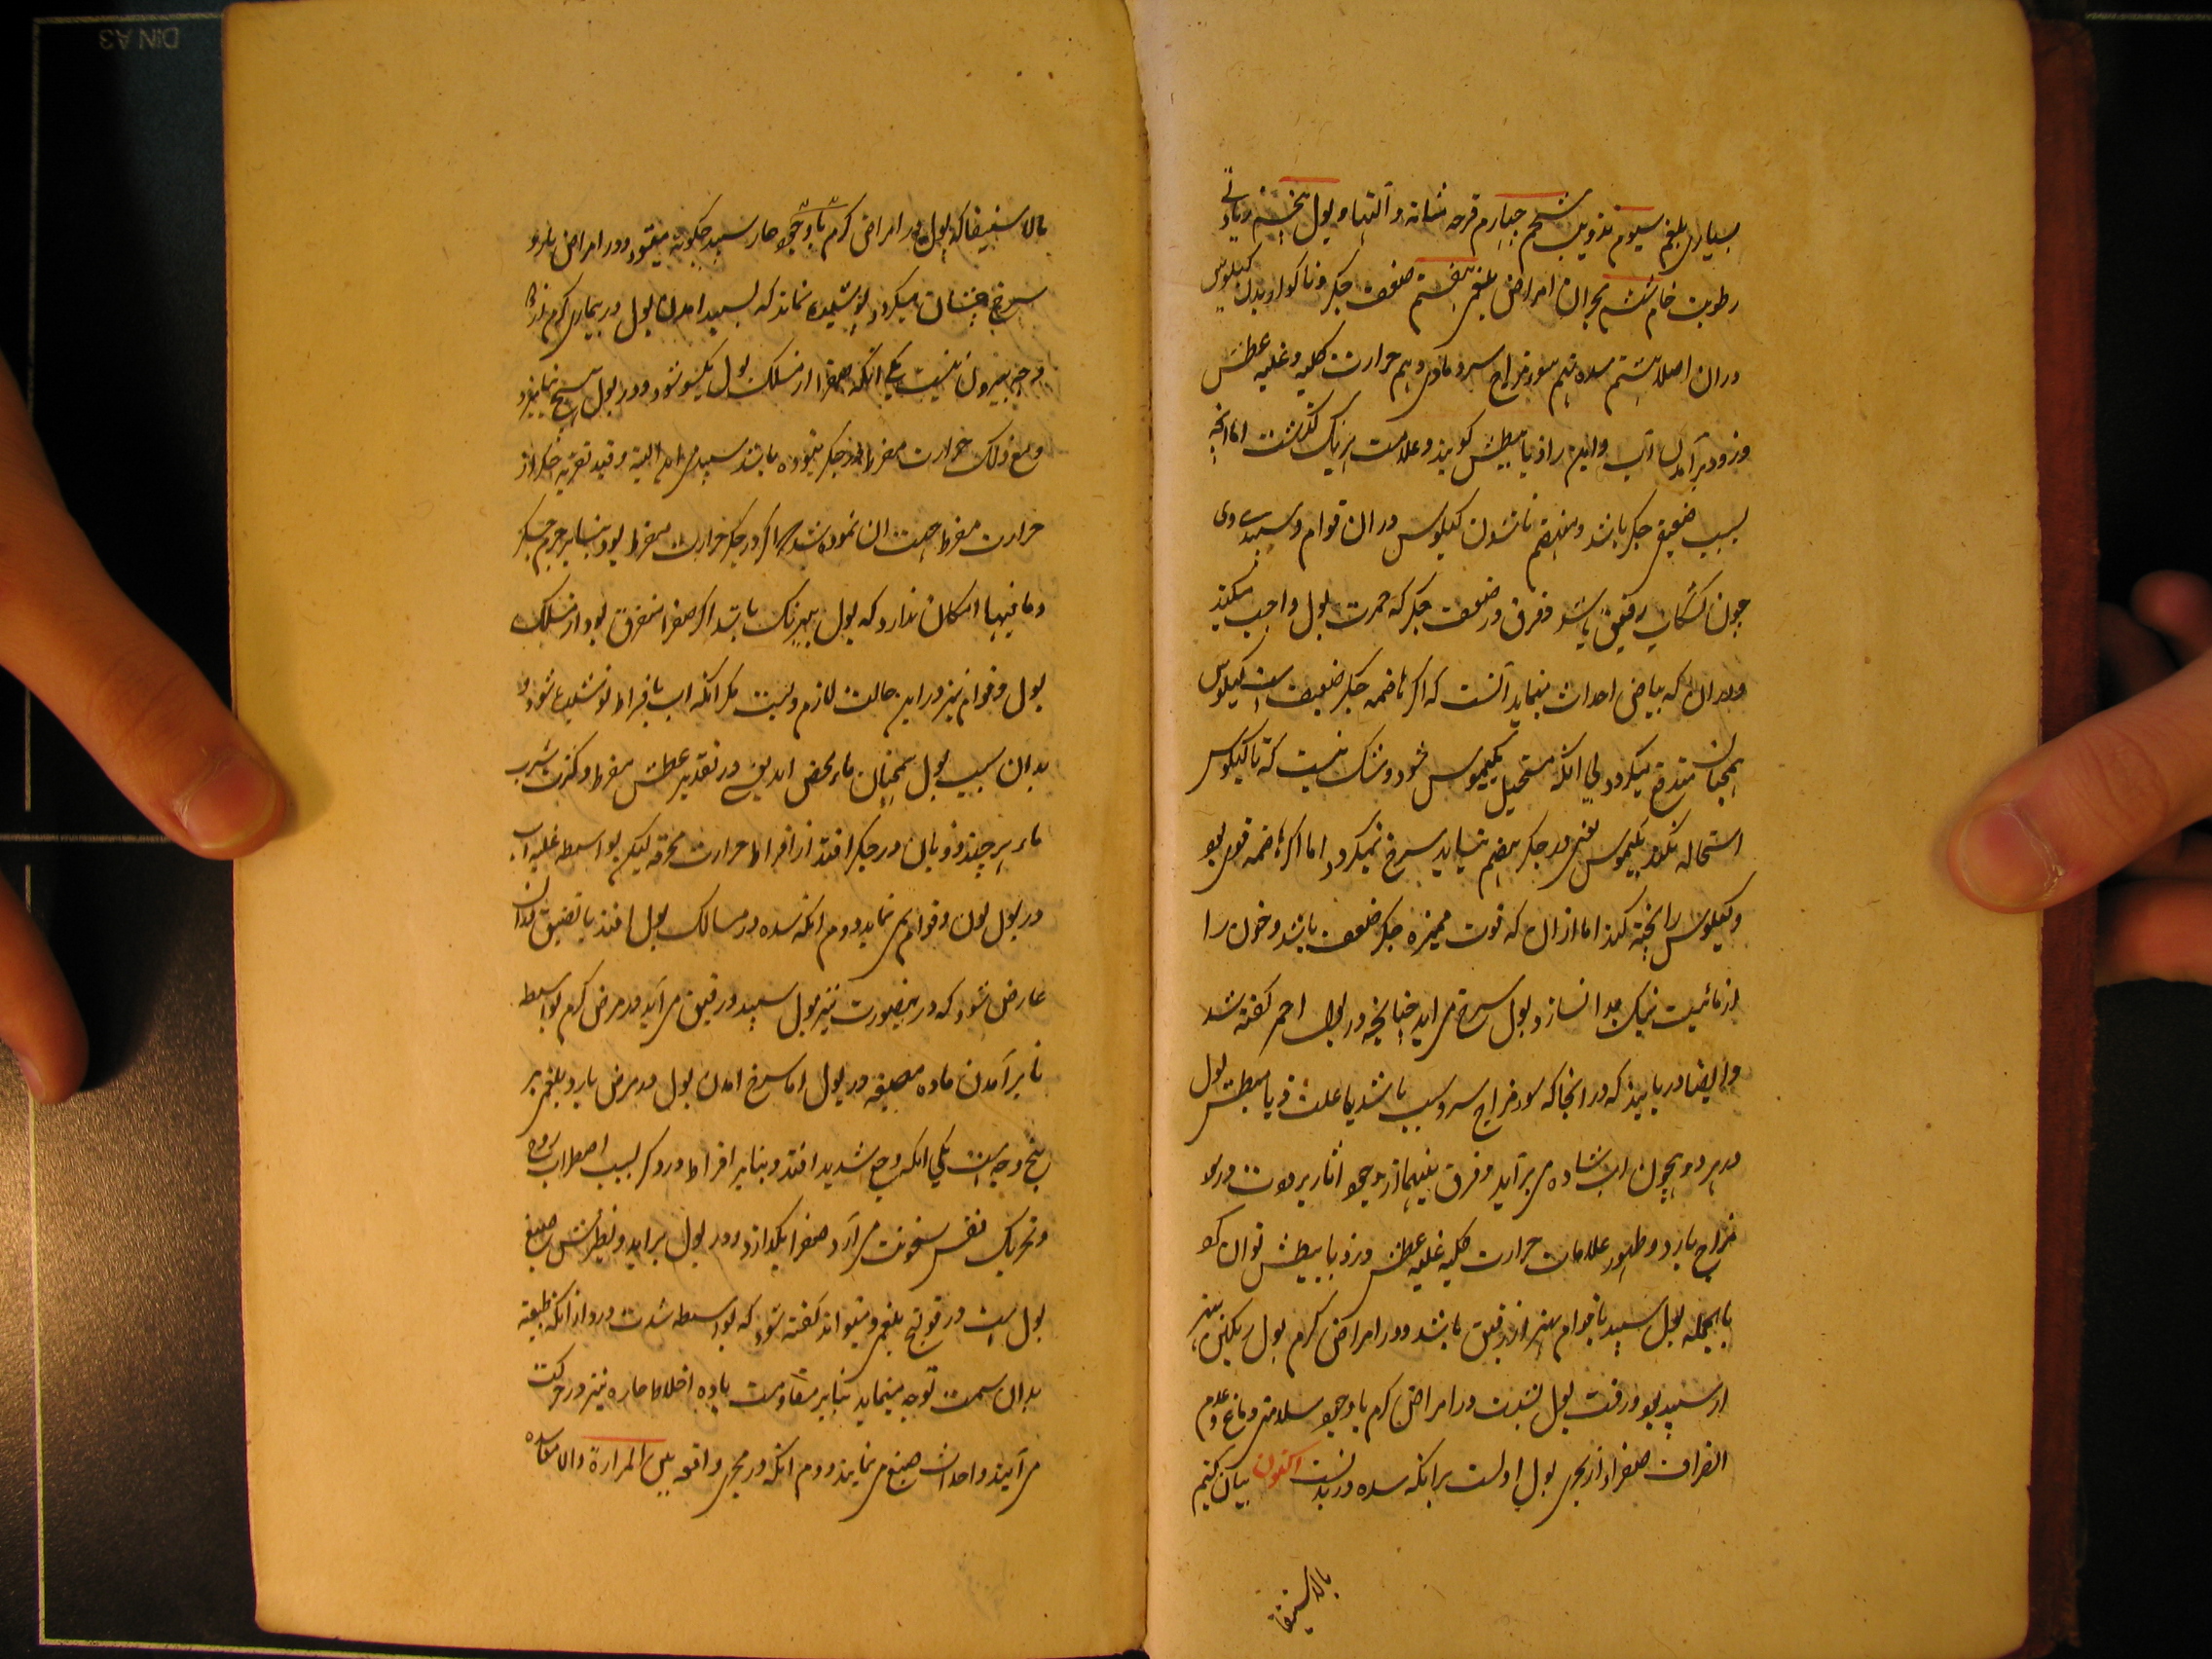 بسیاری بلغم سیوم تذویب شحم چهارم قرحه مثانه و آلتها و بول پنجم زیادتی
رطوبت خام ششم بحران امراض بلغمی هفتم ضعف جکر و ناکواریدن کیلوس
دران اصلا هشتم سده نهم سوء مزاج سرد مادی دهم حرارت کلیه و غلبه عطش
و زود برآمدن آب و این را ذیابیطس کویند و علامت هر یک گذشت اما انچه
بسبب ضعف جکر باشد و منهضم ناشدن کیلوس دران قوام و سپیدی وی
چون کشکاب رقیق باشد و فرق در ضعف جکر که حمرت بول واجب میکند
و دران که بیاض احداث مینماید آنست که اگر هاضمه جکر ضعیف است کیلوس
همچنان مندفع میکردد بی انکه مستحیل بکیموس شود و شک نیست که تا کیلوس
استحاله نکند بکیموس یعنی در جکر هضم نیابد سرخ نمیکردد اما اگر هاضمه قوی بود
و کیلوس را پخته کند اما ازان که قوت ممیزه جکر ضعیف باشد و خون را
از مائیت نیک جدا نسازد بول سرخ می آید چنانچه در بول احمر گفته شد
و ایضا دریابید که در انجا که سوء مزاج سرد سبب باشد یا علت ذیابیطس بول
در هر دو همچون آب ساده می برآید و فرق بینهما از وجود آثار برودت در سوء
مزاج بارد و ظهور علامات حرارت کلیه و غلبه عطش در ذیابیطس توان کرد
بالجمله بول سپید با قوام بهتر از رقیق باشد و در امراض گرم بول رنگین بهتر
از سپید بود و رقت بول سپید در امراض گرم با وجود سلامتی دماغ و عدم
انصراف صفرا از مجری بول اولست برانکه سده در بدنست اکنون بیان کنیم
بالاستیفا
بالاستیفا که بول در امراض گرم با وجود حار سپید چکونه میشود و در امراض بارد
سرخ چسان میکردد پوشیده نماند که سپید امدن بول در بیماری گرم از دو
وجه بیرون نیست یکی انکه صفرا از مسلک بول یکسو شود و در بول هیچ نیامیزد
و مع ذلک حرارت مفرط در جکر نبوده باشد سپید می آید البته و قید تعریه جکر از
حرارت مفرط جهت ان نموده شد که اگر در جکر حرارت مفرط بود بنابر جرم جکر
و ما فیها امکان ندارد که بول بیرنک باشد اگر صفرا متفرق بود از مسلک
بول و قوام نیز در این حالت لازم نیست مکر انکه اب بافراط نوشیده شود و
بدان سبب بول همچنان ماء محض اید یعنی در تقدیر عطش مفرط و کثرت شرب
ماء هر چند ذوبان در جکر افتد از افراط حرارت محرقه لیکن بواسطه غلبه اب
در بول لون و قوام نمی نماید دوم انکه سده در مسالک بول افتد یا تضیق دران
عارض شود که در ینصورت نیز بول سپید و رقیق می آید در مرض گرم بواسطه
نا برآمدن ماده صبیغه در بول اما سرخ امدن بول در مرض بارد بلغمی بر
پنج وجه است یکی انکه وجع شدید افتد و بنابر افراط درد که بسبب اضطراب روح
و تحریک نفس سخونت می آرد صفرا بکدازد و در بول براید و نظیرش صبغ
بول است در قولنج بلغمی و میتواند گفته شود که بواسطه شدت درد از انکه طبیعت
بدان سمت توجه مینماید بنابر مقاومت باده اخلاط حاره نیز در حرکت
می آیند و احداث صبغ می نمایند دوم انکه در مجری واقعه بین المرارة والامعا سده